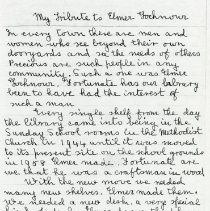 My Tribute to Elmer Pochnour
In every town there are men and
women who see beyond their own
dooryards and see the needs of others
Precious are such people in any
community. Such a one was Elmer
Pochnour. Fortunate has our library
been to have had the interest of
such a man.
Every single shelf from the day
the library came into being in the
Sunday School rooms in the Methodist
Church in 1944 until it was moved
to its present site on the school grounds
in 1958 Elmer made. Fortunate are
we that he was a craftsman in wood.
With the move we needed
many new shelves. Elmer made them.
We needed a new desk, a very special